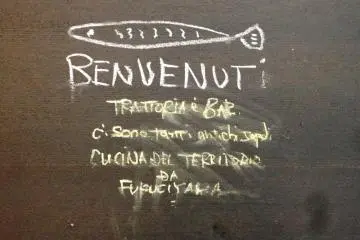 BENVENUTI
TRATTORIA è BAR.
ci sono tanti antichi
CUCINA DEL TERRITORIO
DA
FUKUCIYAMA